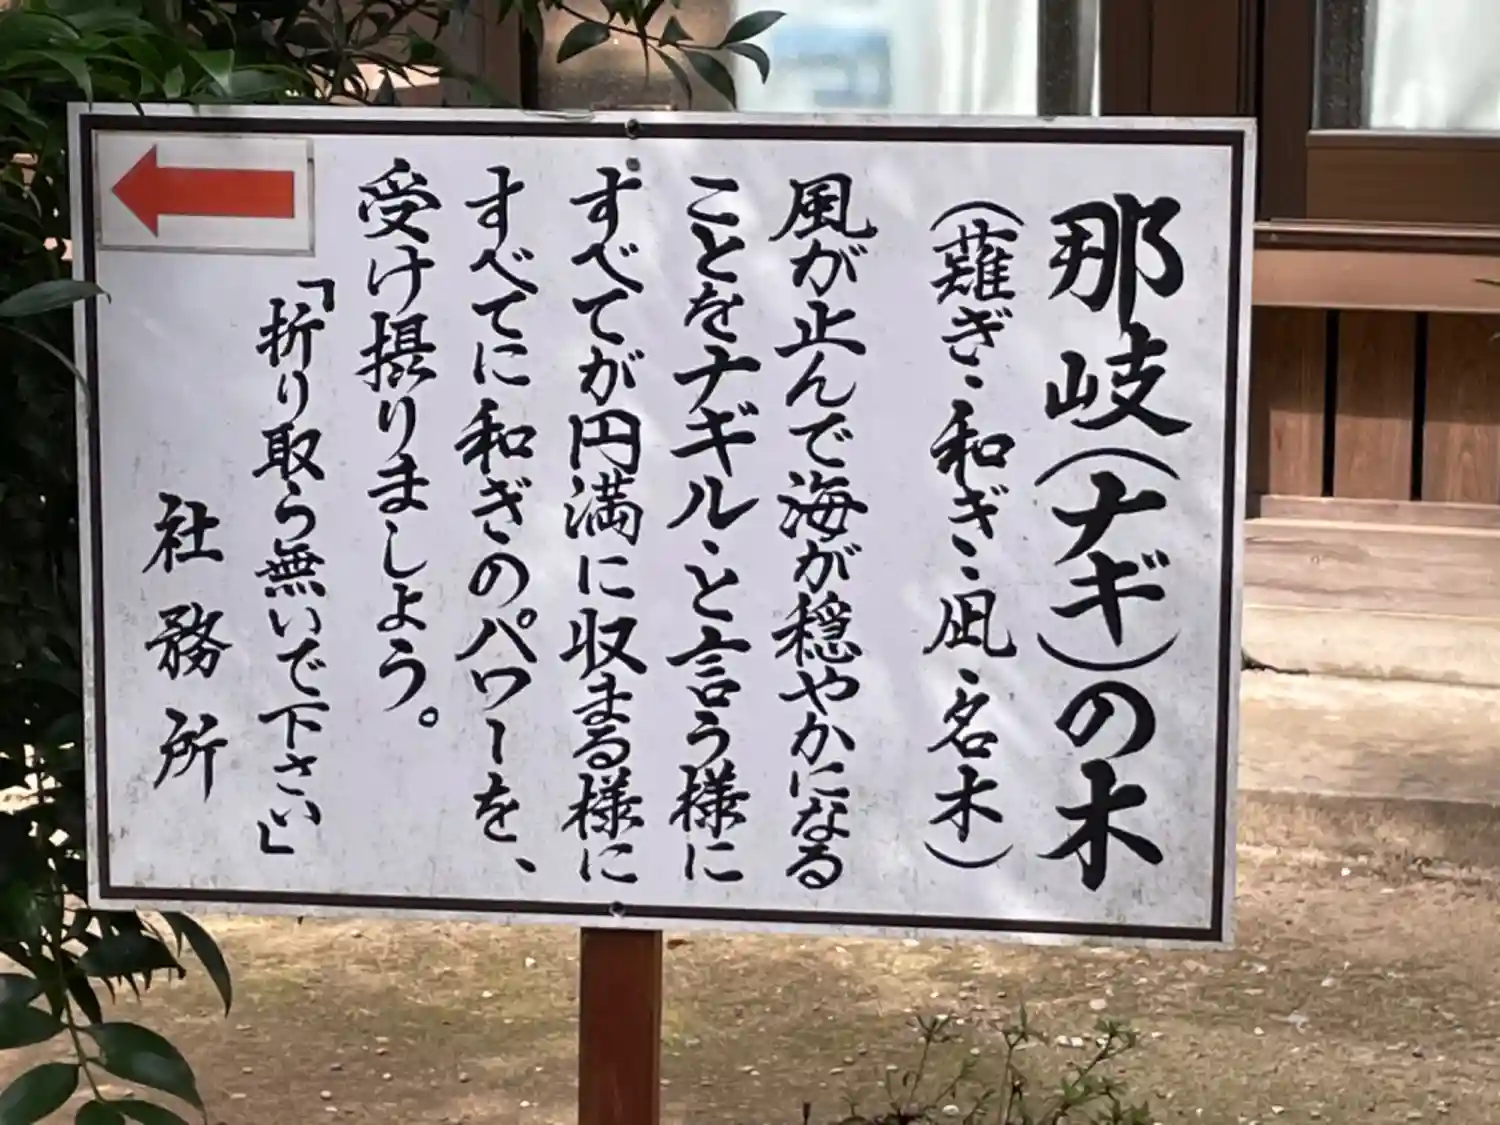 那岐(ナギ)の木
(薙ぎ、和ぎ、凪、名木)
風が止んで海が穏やかになる
ことをナギル、と言う様に
すべてが円満に収まる様に
すべてに和ぎのパワーを、
受け摂りましょう。
「折り取ら無いで下さい」
社務所